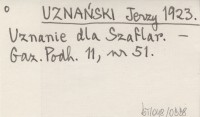 ° UZNAŃSKI Jerzy 1923.
Uznanie dla Szaflar. –
Gaz. Podh. 11, nr 51.